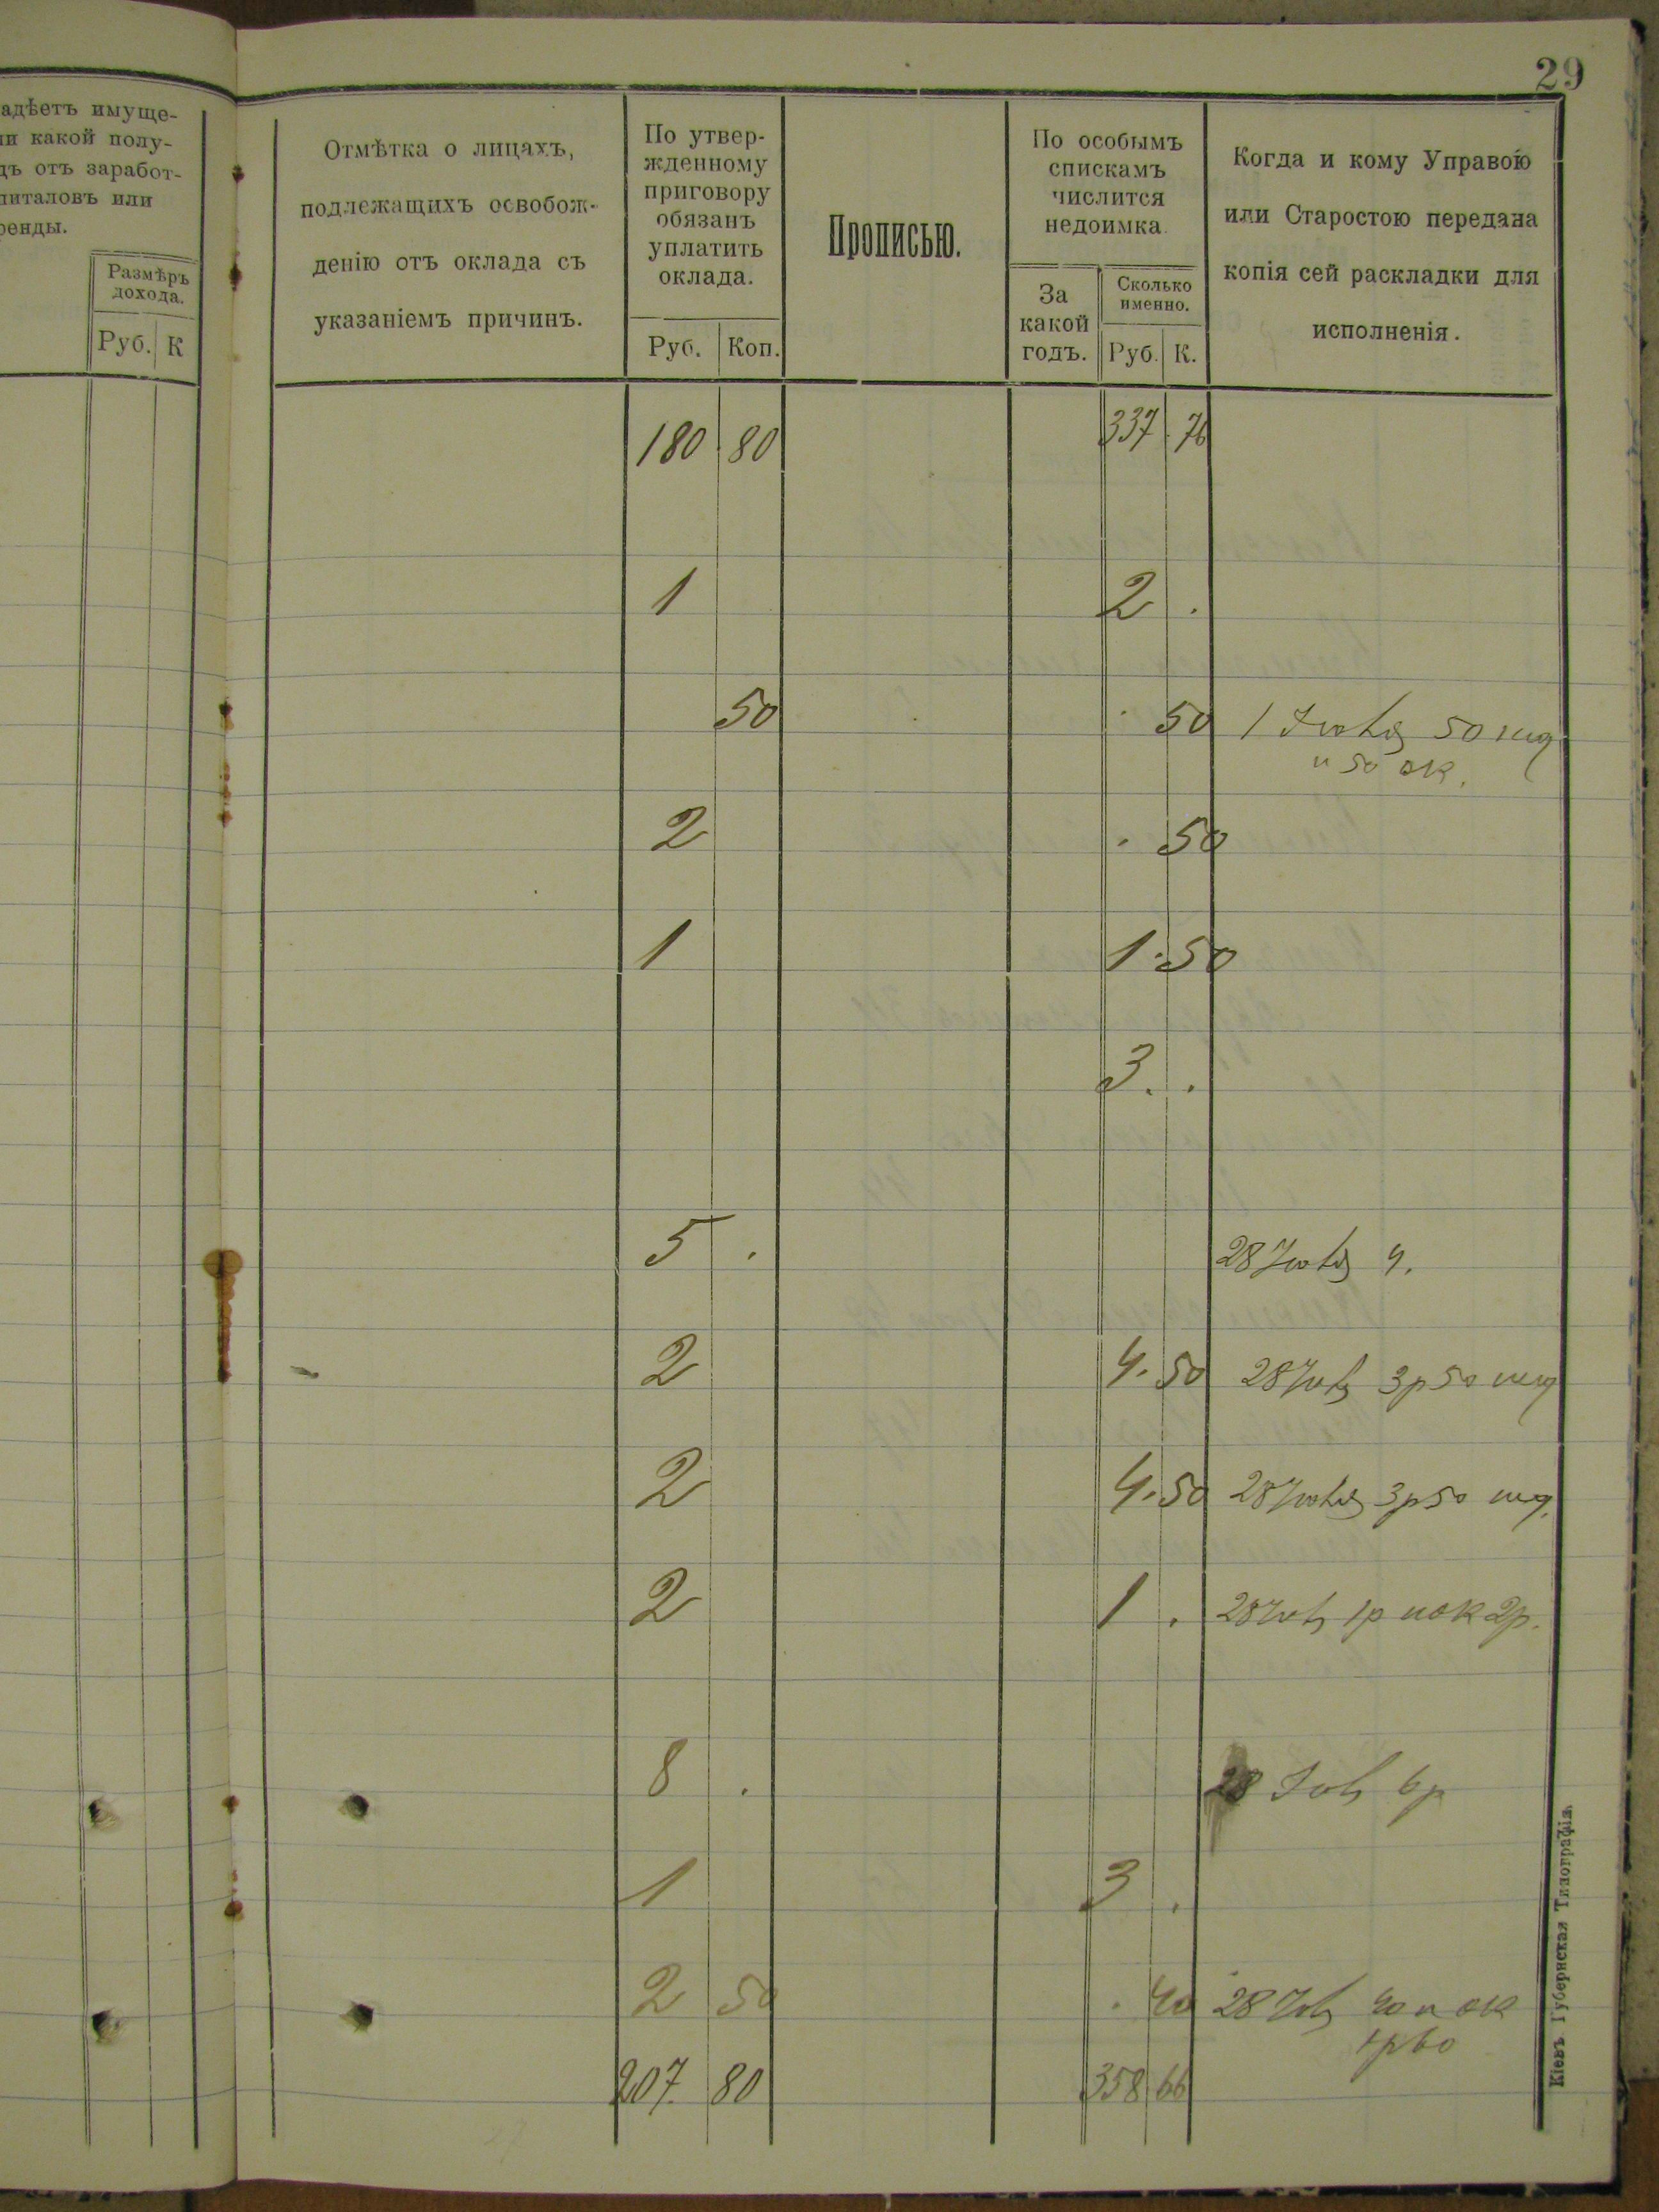 29
адѣетъ имуще-
ли какой полу-
дъ отъ заработ-
питаловъ или
ренды.
Размѣръ
дохода.
Руб. К
Отмѣтка о лицахъ,
подлежащихъ освобож-
денію отъ оклада съ
указаніемъ причинъ.
По утвер-
жденному
приговору
обязанъ
уплатить
оклада.
Руб. Коп.
Прописью.
По особымъ
спискамъ
числится
недоимка
За
какой
годъ.
Сколько
именно.
Руб. К.
Когда и кому Управою
или Старостою передана
копія сей раскладки для
исполненія.
180 80 337 76
1 2 .
50 . 50 1 50
и 50 ок.
2 . 50
1 1.50
3. .
5 . 28 4.
2 4.50 28 3р50
2 4.50 28 3р50
2 1 . 28 1р и ок 2р.
8 . 28 6р
1 3 .
2 50 . 40 28 40 и ок
1р60
207. 80 358 66
Кіевъ Губернская Типографія.